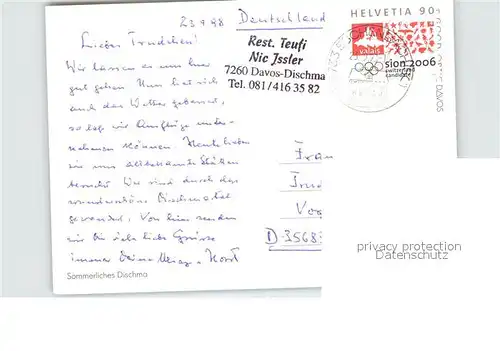 23.9.98 Deutschland
HELVETIA 90
Liebes Trudchen!
Rest. Teufi
Nic Jssler
7260 Davos-Dischma
Tel. 081/416 35 82
valais
sion 2006
switzerland
candidate
DAVOS
Wir lassen es uns hier
gut gehen. Nun hat sich
auch das Wetter gebessert,
so daß wir Ausflüge unter-
nehmen können. Heute haben
wir uns altbekannte Stätten
besucht. Wir sind durch das
wunderschöne Dischmatal
gewandert. Von hier senden
wir Dir liebe Grüsse
immer Deine Horst
Frau
Trud
Vog
D-3568
privacy protection
Datenschutz
Sommerliches Dischma